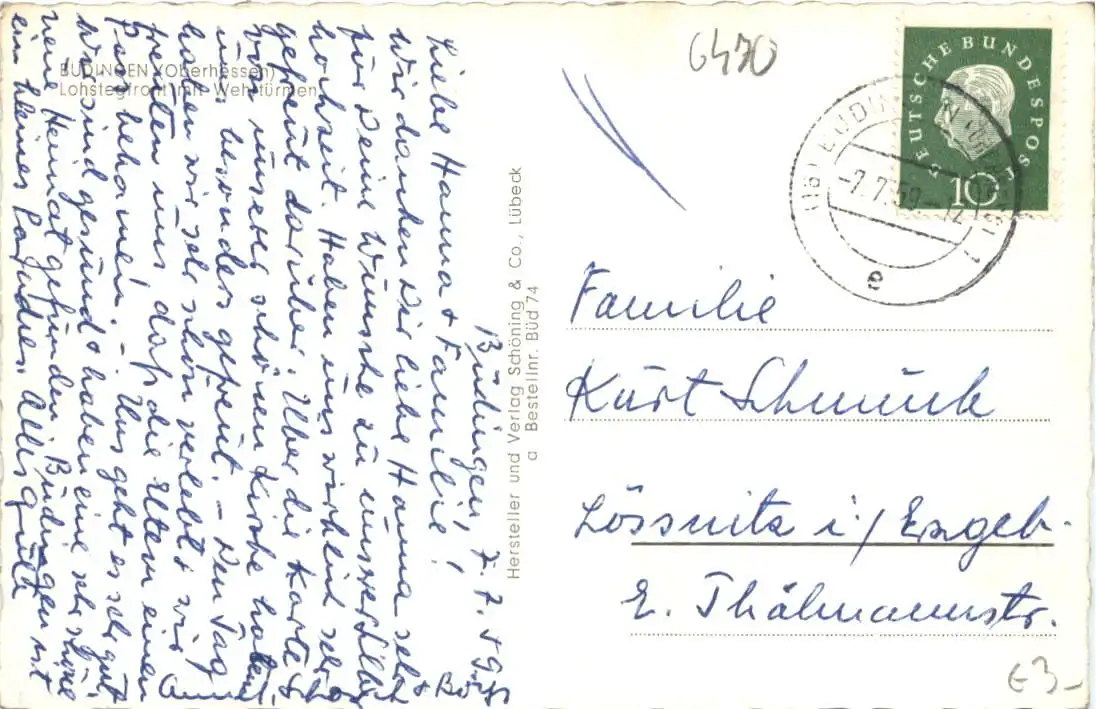 6470
BÜDINGEN (Oberhessen)
Lohstegfront mit Wehrtürmen
Büdingen, 7.7.
Liebe Hanna + Familie!
Wir danken Dir liebe Hanna sehr
für Deine Wünsche zu unserer Silber
hochzeit. Haben uns wirklich sehr
gefreut darüber. Über die Karte
von unserer schönen Kirche haben
uns besonders gefreut. – Den Tag
haben wir sehr schön verlebt + wir
freuten uns daß die Eltern einen
Pass bekamen. – Uns geht es sehr gut
Wir sind gesund + haben eine sehr schöne
neue Heimat gefunden. Büdingen ist
ein kleines Paradies. Alles Gute
Hersteller und Verlag Schöning & Co., Lübeck
a Bestellnr. Büd 74
DEUTSCHE BUNDESPOST
10
(16) BÜDINGEN
-7.7.59.-12
e
Familie
Kurt Schmuck
Lössnitz i/ Erzgeb.
E. Thälmannstr.
€3-